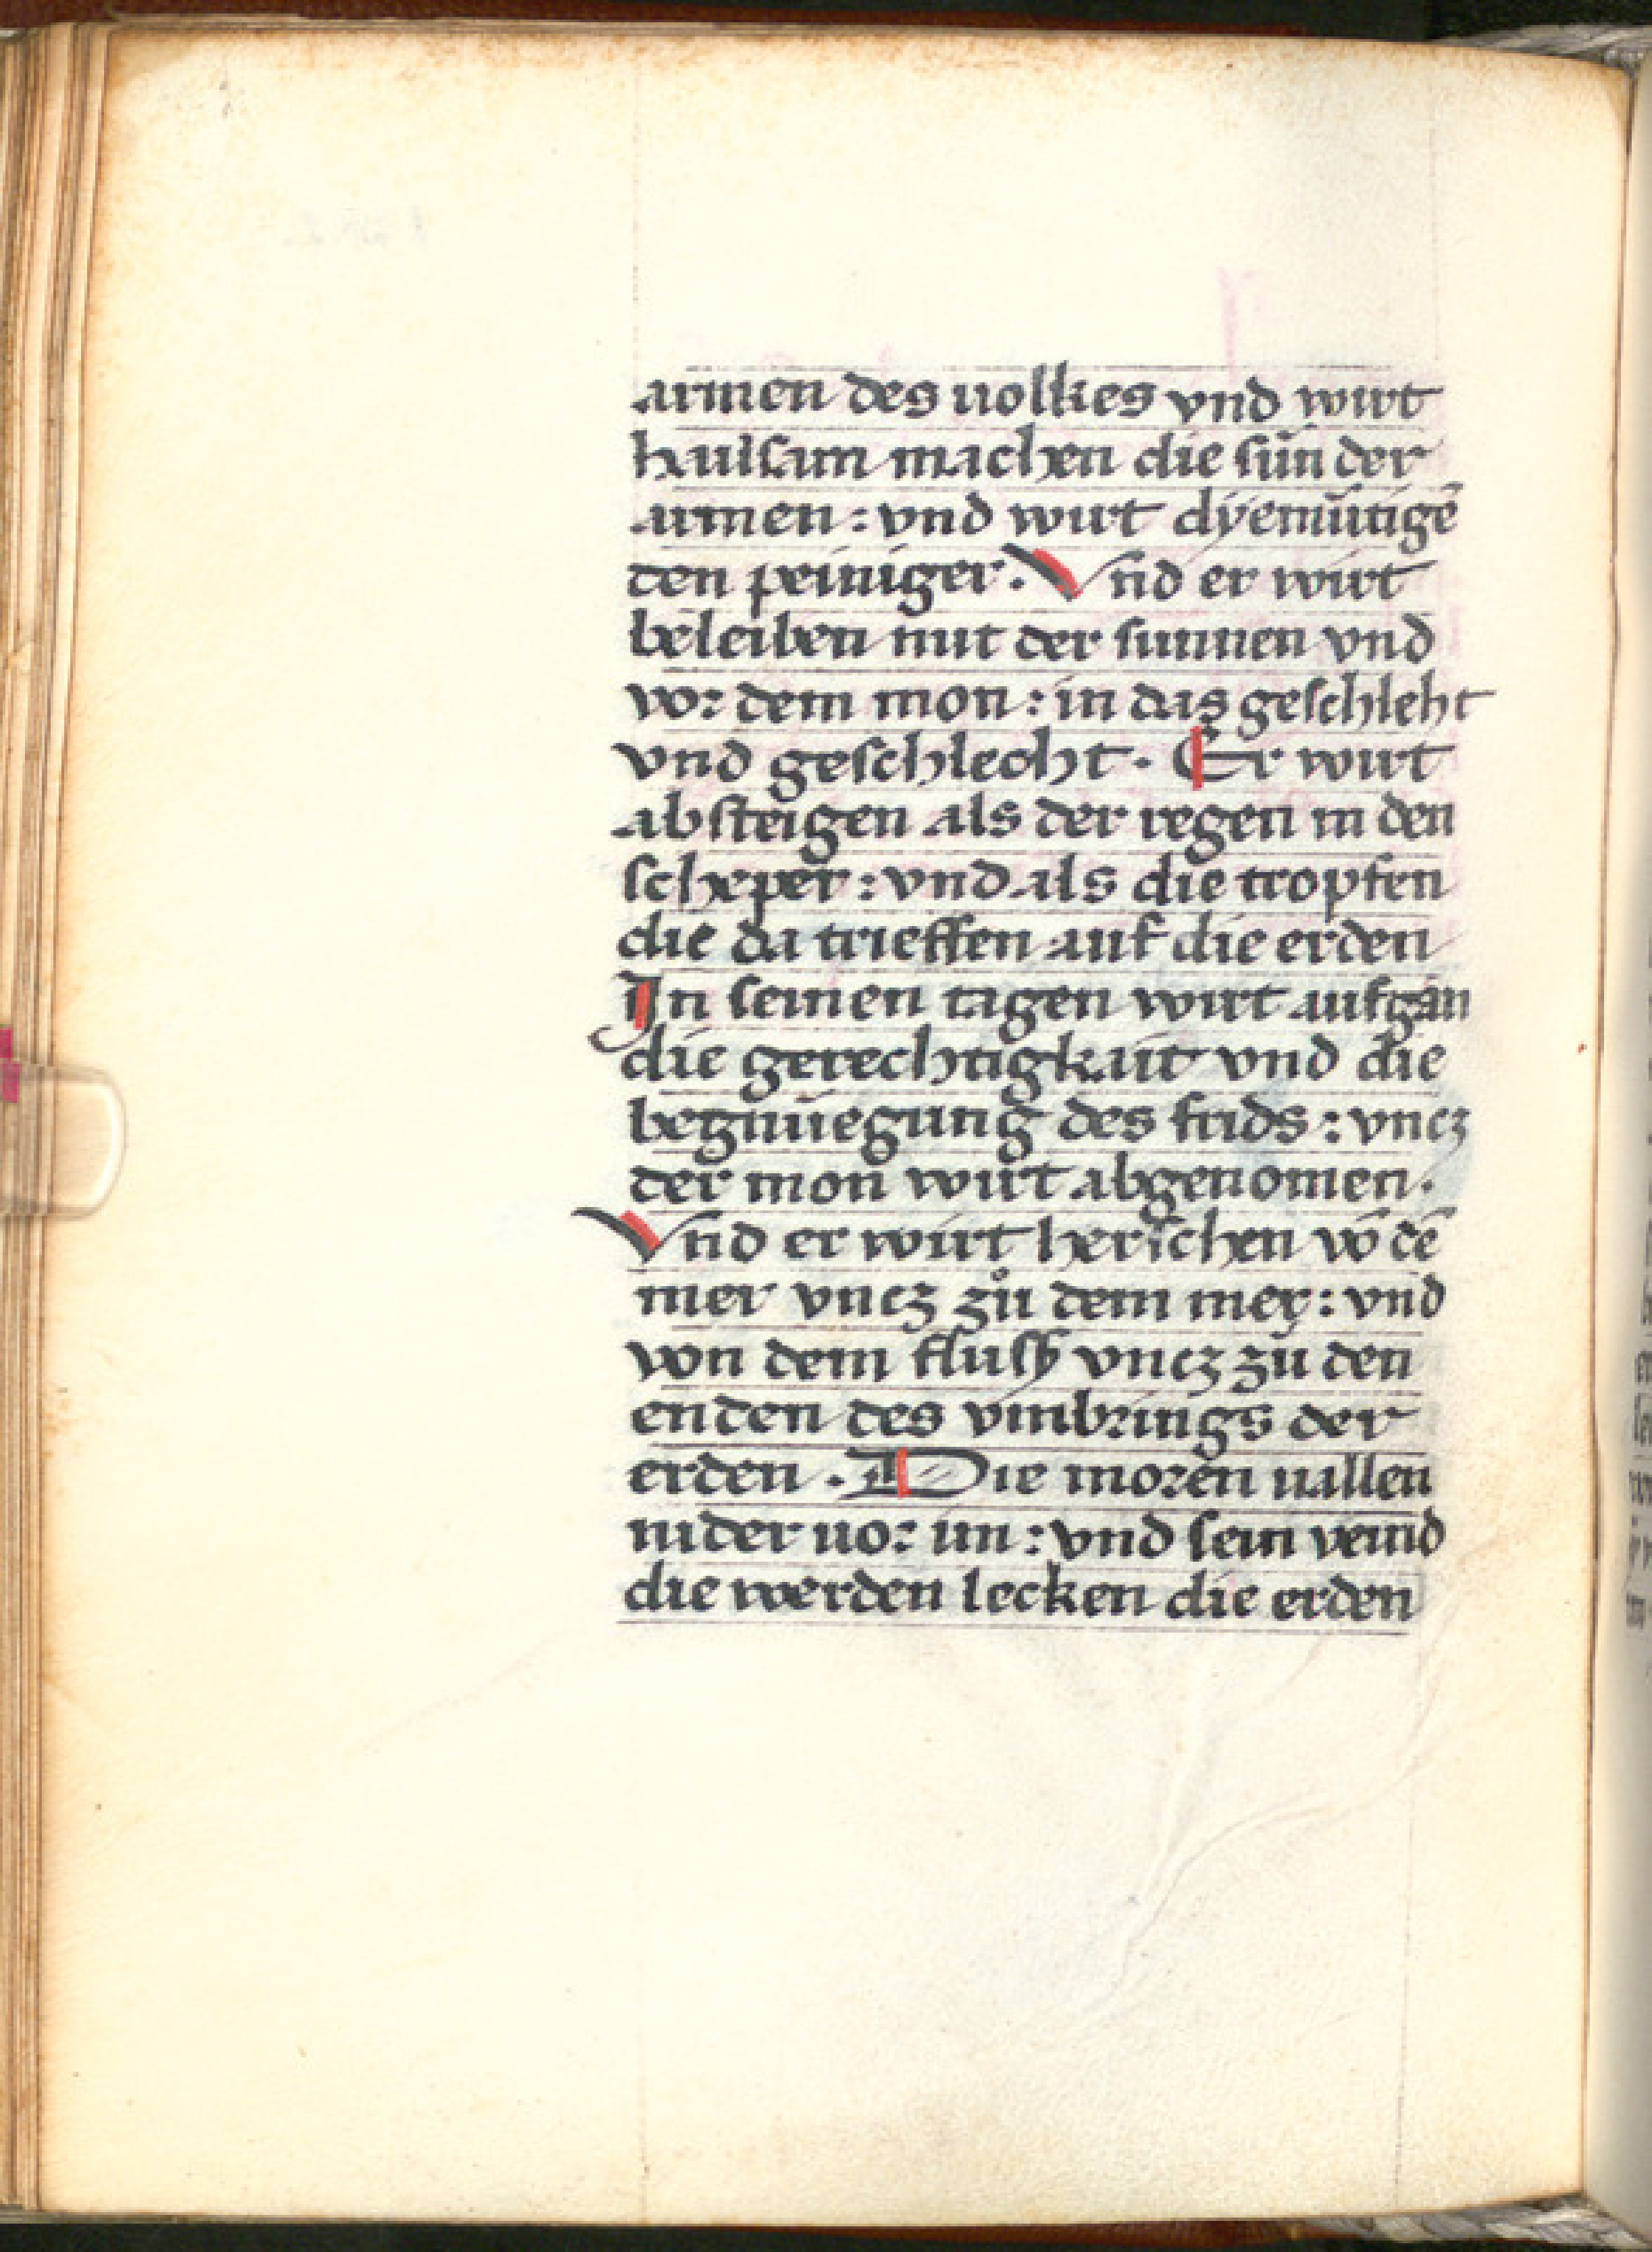 armen des uolkes vnd wirt
hailsam machen die sün der
armen : vnd wirt dyemütigē
den peiniger. Vnd er wirt
beleiben mit der sunnen vnd
vor dem mon : in das geschleht
vnd geschlecht. Er wirt
absteigen als der regen in den
scheper : vnd als die tropfen
die da trieffen auf die erden
In seinen tagen wirt aufgan
die gerechtigkait vnd die
begnüegung des frids : vncz
der mon wirt abgenomen.
Vnd er wirt herschen vō dē
mer vncz zů dem mer : vnd
von dem flusß vncz zů den
enden des vmbrings der
erden. Die moren uallen
nider uor im : vnd sein veind
die werden lecken die erden